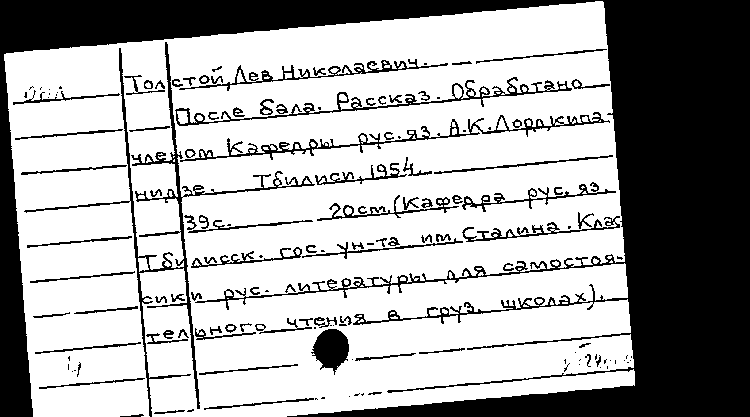 Толстой, Лев Николаевич.
После бала. Рассказ. Обработано
членом Кафедры рус. яз. А.К. Лордкипа-
нидзе. Тбилиси, 1954.
39с. 20см. (Кафедра рус. яз.
Тбилисск. гос. ун-та им. Сталина. Клас
сики рус. литературы для самостоя-
тельного чтения в груз. школах).